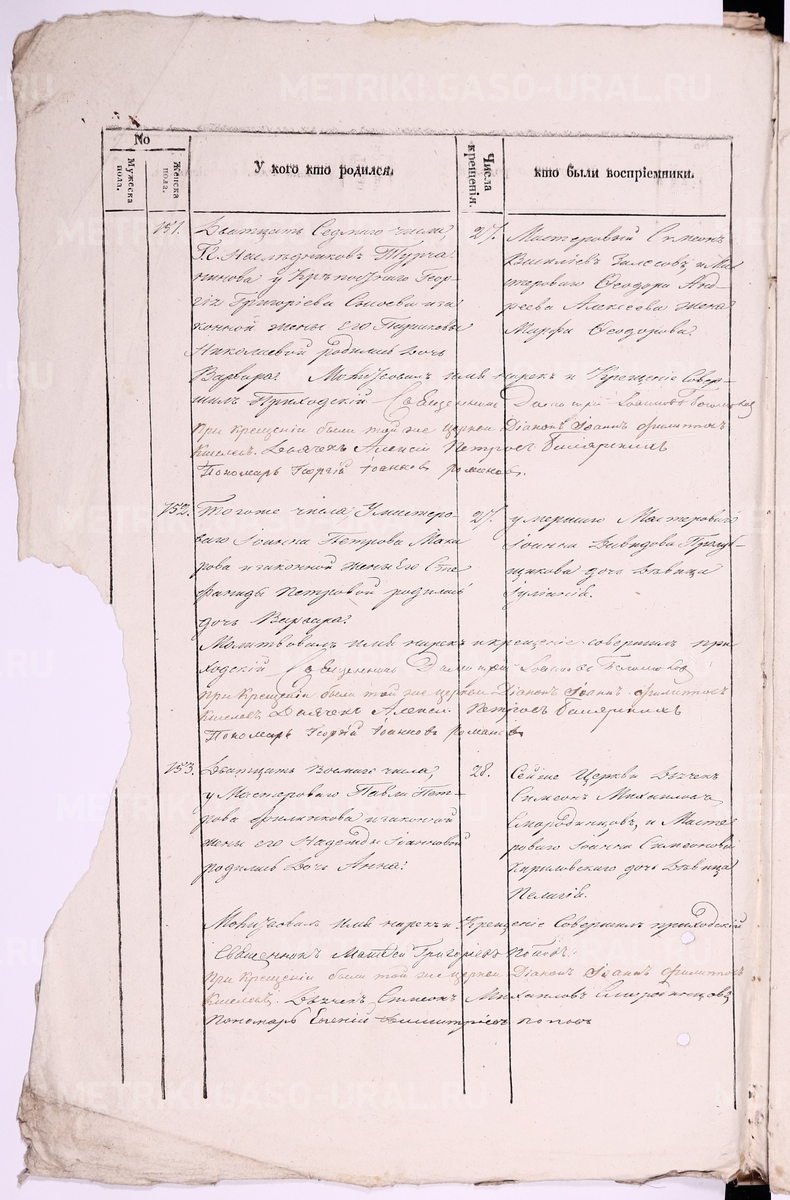 METRIKI.GASO-URAL.RU
No
Мужеска пола.
Женска пола.
У кого кто родился.
Числа крещенія.
кто были воспріемники.
151.
Дватцать Седмаго числа,
Г. Наслѣдниковъ Турча-
нинова у Крѣпостнаго Геор-
гія Григоріева и за-
конной жены его
Николаевой родилась дочь
Варвара.
27.
Мастеровой Симеонъ
Василіевъ и Ма-
стероваго Ѳеодора Анд-
реева Алексѣева жена
Марфа Ѳеодорова.
Молитвовалъ имя нарекъ и Крещеніе Совер-
шилъ Приходскій Священникъ Димитрій
При Крещеніи были той же церкви Діаконъ Іоаннъ Филиповъ
Киселевъ. Дьячекъ Алексѣй Петровъ
Пономарь Георгій Іоанновъ Романовъ.
152.
Тогоже числа У мастеро-
ваго Іоанна Петрова Мака-
рова и законной жены Его Сте-
фаниды Петровой родилась
дочь Варвара.
27.
умершаго Мастероваго
Іоанна Давыдова
дочь Дѣвица
Іуліанія.
Молитвовалъ имя нарекъ и крещеніе совершилъ при-
ходскій Священникъ Димитрій
При Крещеніи были той же церкви Діаконъ Іоаннъ Филиповъ
Киселевъ Дьячекъ Алексѣй Петровъ
Пономарь Георгій Іоанновъ Романовъ
153.
Дватцать восмаго числа,
у Мастероваго Павла Пет-
рова и законной
жены его Надежды Іоанновой
родилась дочь Анна.
28.
Сейже Церкви Дьячекъ
Симеонъ Михаиловъ
Смородинцовъ, и Масте-
роваго Іоанна Симеонова
Кириловскаго дочь Дѣвица
Пелагія.
Молитвовалъ имя нарекъ и Крещеніе Совершилъ приходскій
Священникъ Матѳей Григоріевъ Поповъ.
При Крещеніи были той же церкви Діаконъ Іоаннъ Филиповъ
Киселевъ. Дьячекъ Симеонъ Михаиловъ Смородинцовъ,
Пономарь Евгеній Димитріевъ Поповъ